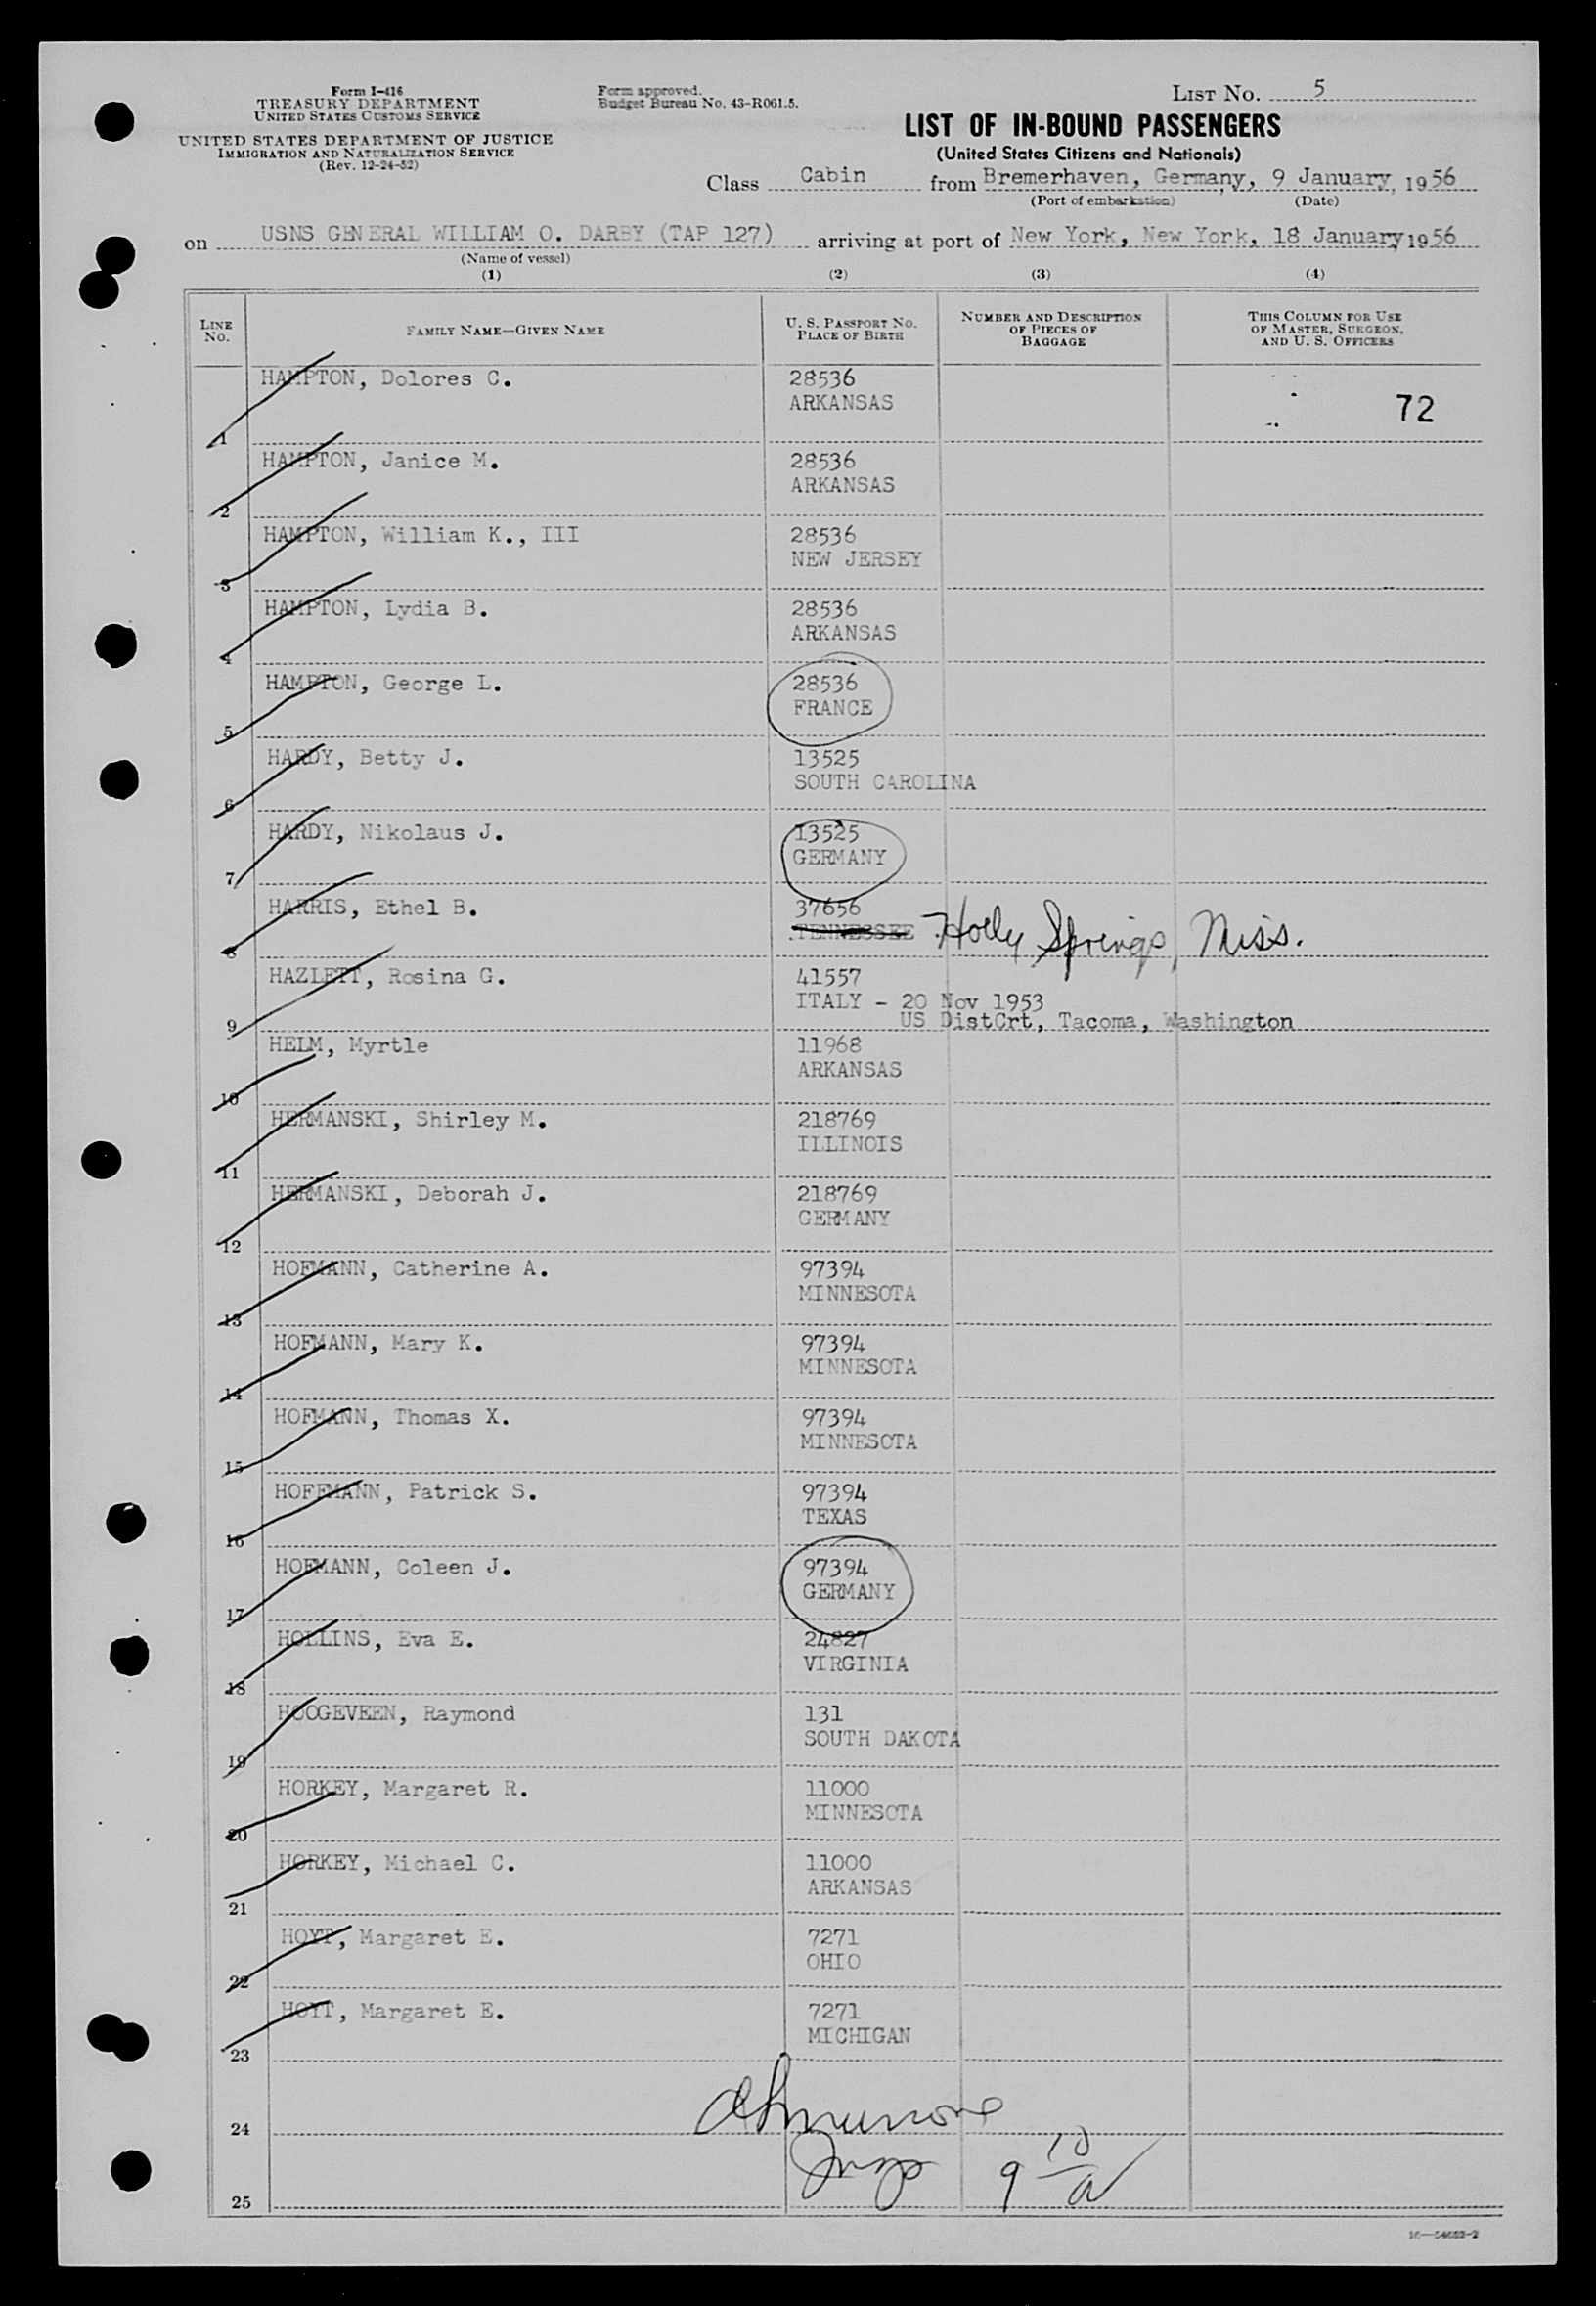 Form I-416
TREASURY DEPARTMENT
UNITED STATES CUSTOMS SERVICE
UNITED STATES DEPARTMENT OF JUSTICE
IMMIGRATION AND NATURALIZATION SERVICE
(Rev. 12-24-52)
Form approved.
Budget Bureau No. 43-R061.5.
LIST NO. 5
LIST OF IN-BOUND PASSENGERS
(United States Citizens and Nationals)
Class Cabin from Bremerhaven, Germany, 9 January, 1956
(Port of embarkation) (Date)
on USNS GENERAL WILLIAM O. DARBY (TAP 127) arriving at port of New York, New York, 18 January 1956
(Name of vessel)
(1) (2) (3) (4)
LINE NO. FAMILY NAME—GIVEN NAME U. S. PASSPORT NO. PLACE OF BIRTH NUMBER AND DESCRIPTION OF PIECES OF BAGGAGE THIS COLUMN FOR USE OF MASTER, SURGEON, AND U. S. OFFICERS
HAMPTON, Dolores C. 28536
ARKANSAS 72
1
HAMPTON, Janice M. 28536
ARKANSAS
2
HAMPTON, William K., III 28536
NEW JERSEY
3
HAMPTON, Lydia B. 28536
ARKANSAS
4
HAMPTON, George L. 28536
FRANCE
5
HARDY, Betty J. 13525
SOUTH CAROLINA
6
HARDY, Nikolaus J. 13525
GERMANY
7
HARRIS, Ethel B. 37656
TENNESSEE Holly Springs, Miss.
8
HAZLETT, Rosina G. 41557
ITALY - 20 Nov 1953
9 US DistCrt, Tacoma, Washington
HELM, Myrtle 11968
ARKANSAS
10
HERMANSKI, Shirley M. 218769
ILLINOIS
11
HERMANSKI, Deborah J. 218769
GERMANY
12
HOFMANN, Catherine A. 97394
MINNESOTA
13
HOFMANN, Mary K. 97394
MINNESOTA
14
HOFMANN, Thomas X. 97394
MINNESOTA
15
HOFFMANN, Patrick S. 97394
TEXAS
16
HOFMANN, Coleen J. 97394
GERMANY
17
HOLLINS, Eva E. 24827
VIRGINIA
18
HOOGEVEEN, Raymond 131
SOUTH DAKOTA
19
HORKEY, Margaret R. 11000
MINNESOTA
20
HORKEY, Michael C. 11000
ARKANSAS
21
HOYT, Margaret E. 7271
OHIO
22
HOYT, Margaret E. 7271
MICHIGAN
23
24
9 10/a
25